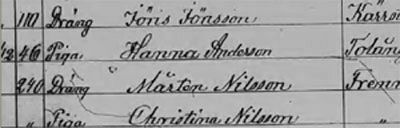 110 Dräng Jöns Jönsson Kärrst
1/2 46 Piga Hanna Anderson Tolång
240 Dräng Mårten Nilsson Frenn
" Piga Christina Nilsson "